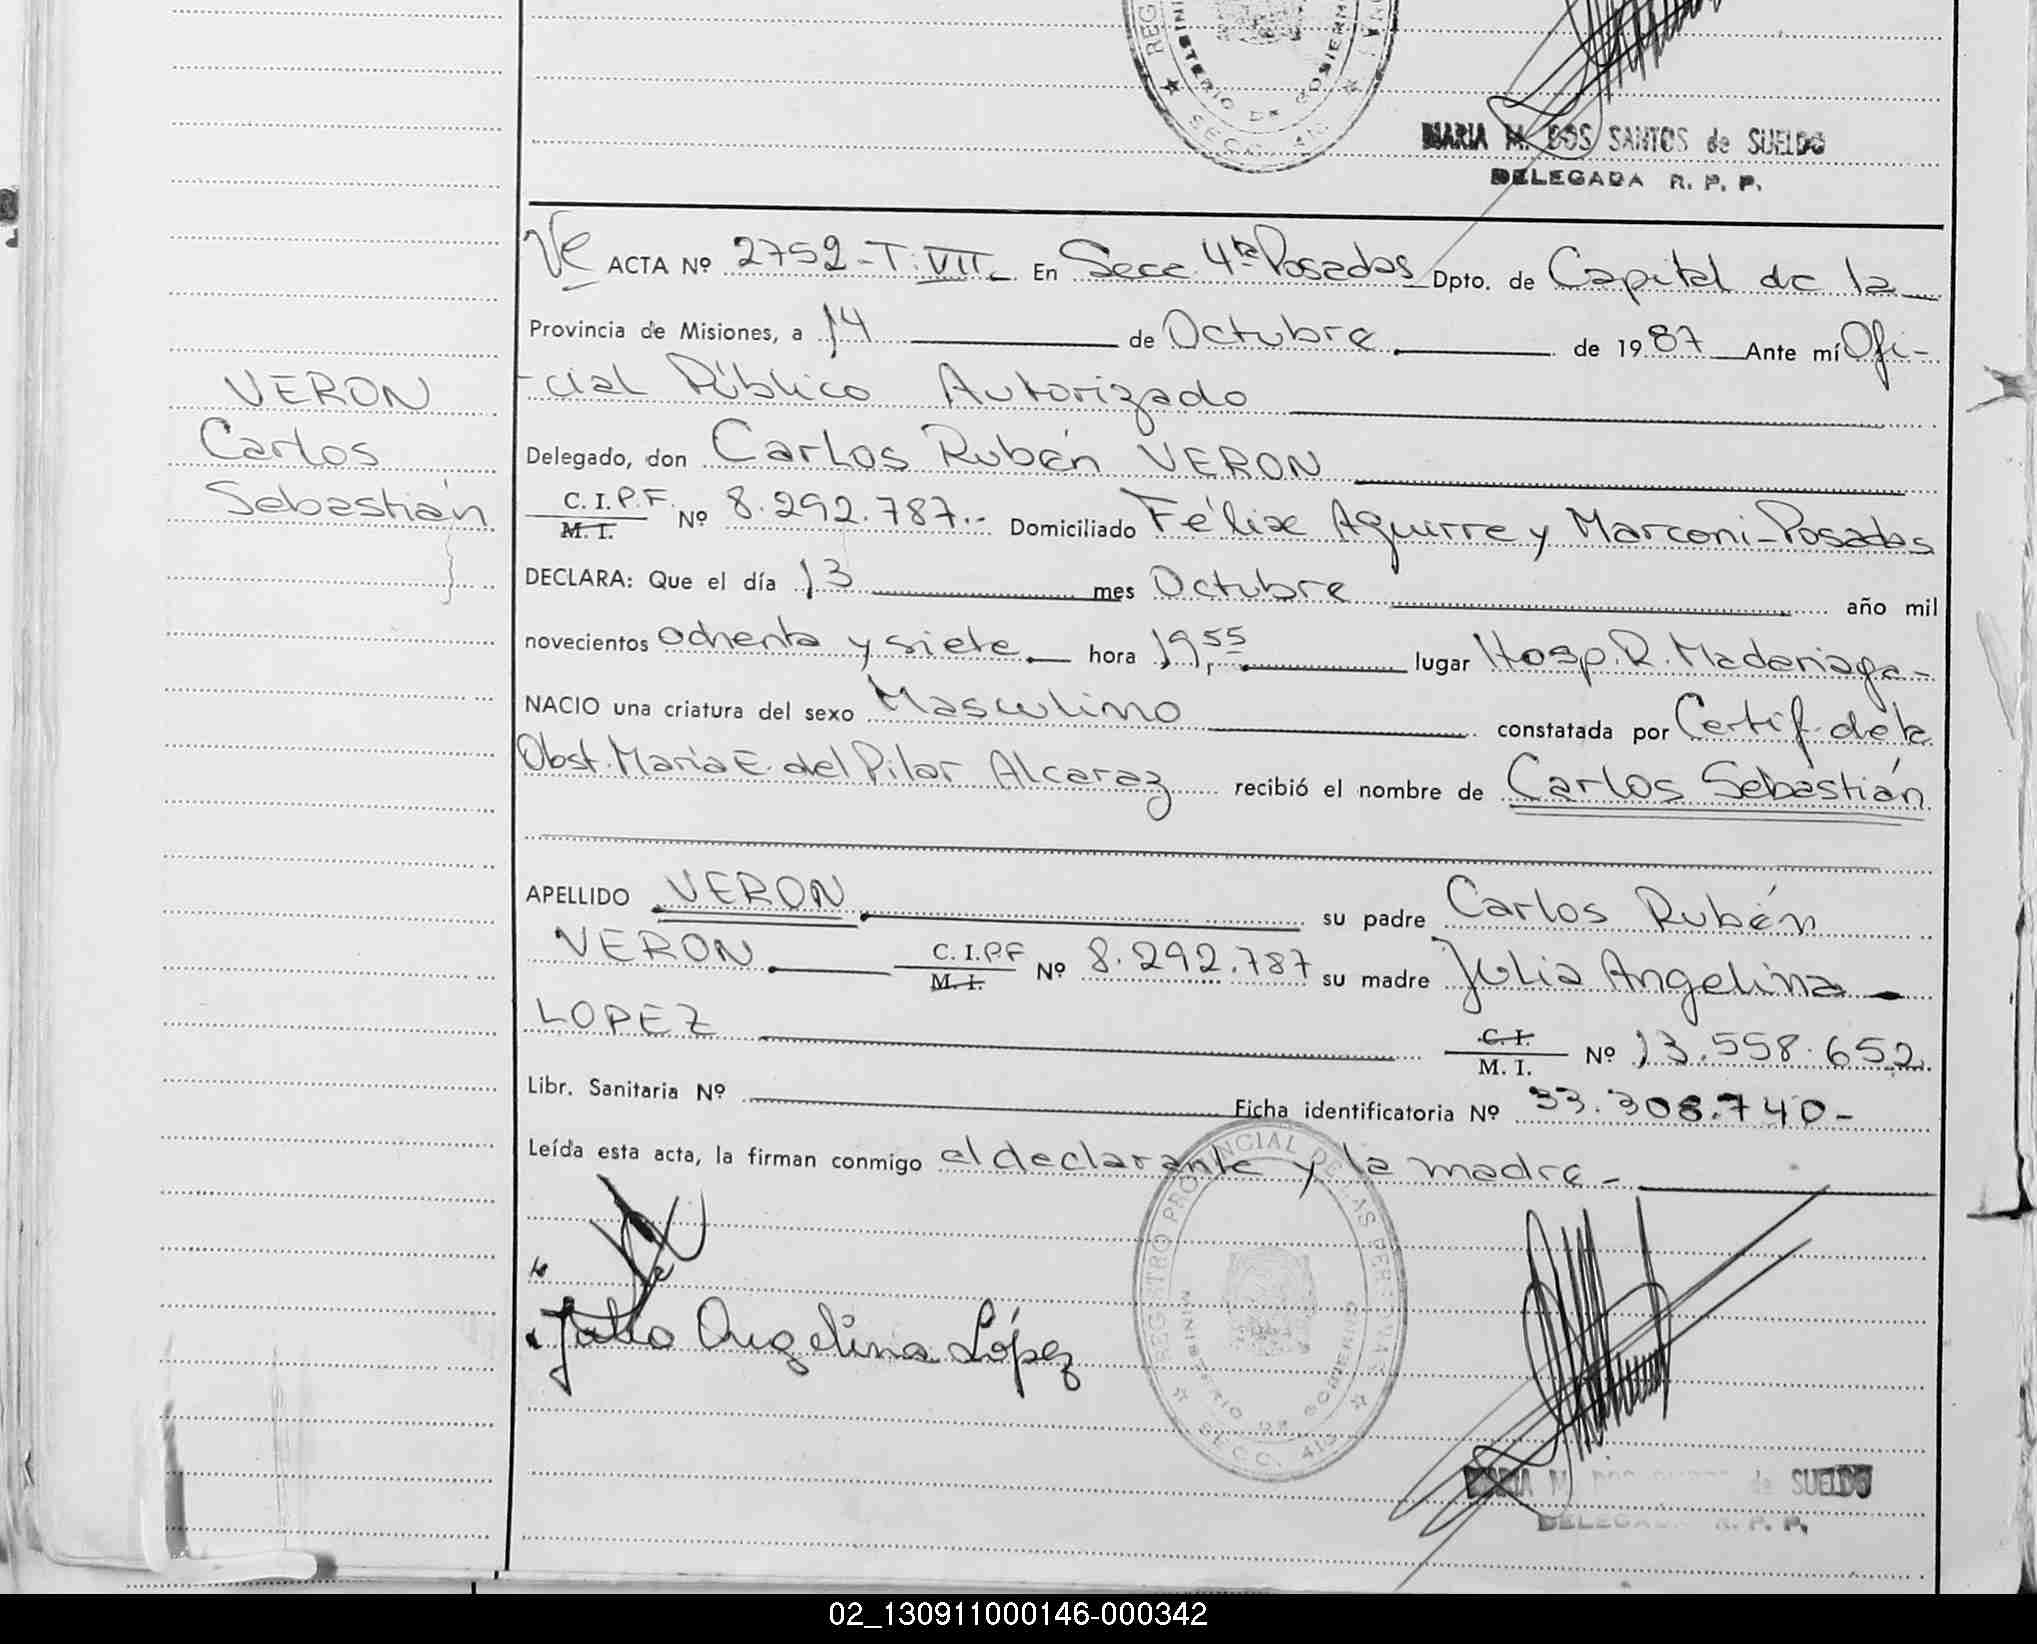 MINISTERIO DE GOBIERNO
SECC. 4ta
MARIA M. DOS SANTOS de SUELDO
DELEGADA R. P. P.
ACTA Nº 2752-T.VII.- En Secc. 4ta Posadas Dpto. de Capital de la
Provincia de Misiones, a 14 de Octubre de 1987 Ante mí Ofi-
-cial Público Autorizado
VERON
Carlos
Sebastián
Delegado, don Carlos Rubén VERON
C.I.P.F. M. I. Nº 8.292.787.- Domiciliado Félix Aguirre y Marconi-Posadas
DECLARA: Que el día 13 mes Octubre año mil
novecientos ochenta y siete hora 19,55 lugar Hosp. R. Madariaga-
NACIO una criatura del sexo Masculino constatada por Certif. de la
Obst. María E. del Pilar Alcaraz recibió el nombre de Carlos Sebastián
APELLIDO VERON su padre Carlos Rubén
VERON C.I.PF M. I. Nº 8.292.787 su madre Julia Angelina
LOPEZ C. I. M. I. Nº 13.558.652
Libr. Sanitaria Nº Ficha identificatoria Nº 33.308.740-
Leída esta acta, la firman conmigo el declarante y la madre-
REGISTRO PROVINCIAL DE LAS PERSONAS
MINISTERIO DE GOBIERNO
SECC. 4ta
Julia Angelina López
MARIA M. DOS SANTOS de SUELDO
DELEGADA R. P. P.
02_130911000146-000342